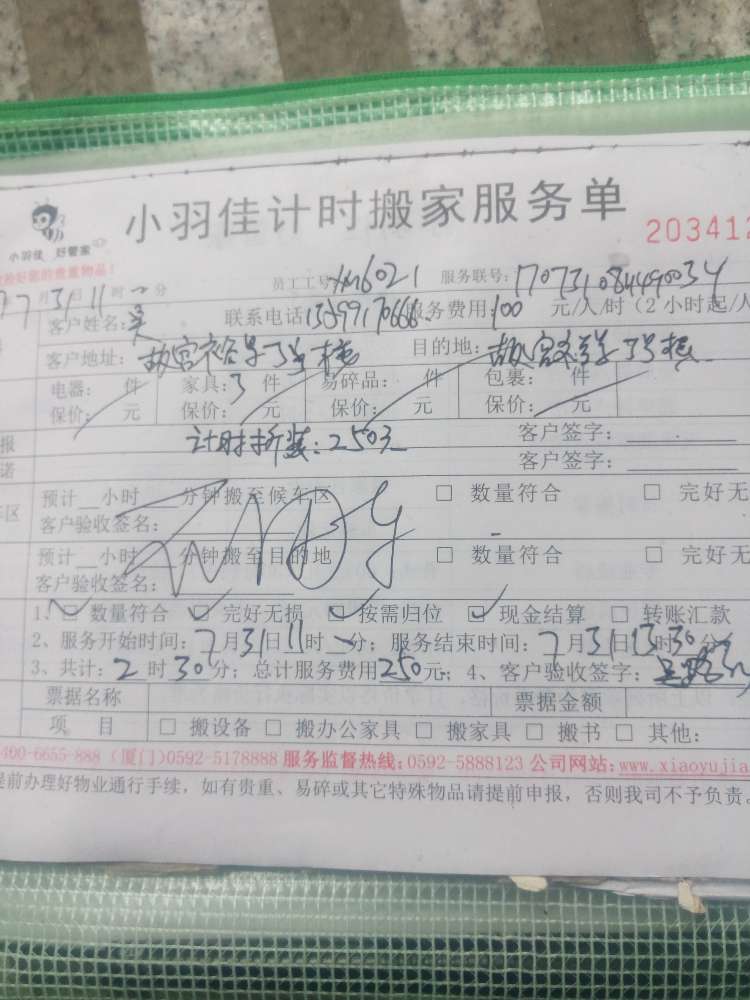 小羽佳计时搬家服务单
小羽佳 好管家
203412
好您的贵重物品!
7月31 11时 分 员工工号:XM6021 服务联号:170731084490034
客户姓名:吴 联系电话13599170666 服务费用:100 元/人/时(2小时起/人
客户地址: 目的地:
电器: 件 家具:3件 易碎品: 件 包裹: 件
保价: 元 保价: 元 保价: 元 保价: 元
报 计时拆装:2503 客户签字:
诺 客户签字:
预计 小时 分钟搬至候车区 □ 数量符合 □ 完好无
车区 客户验收签名:
预计 小时 分钟搬至目的地 □ 数量符合 □ 完好无
客户验收签名:
1、☑ 数量符合 ☑ 完好无损 ☑ 按需归位 ☑ 现金结算 □ 转账汇款
2、服务开始时间:7月31日11时 分; 服务结束时间:7月31日13时30分
3、共计:2时30分; 总计服务费用250元; 4、客户验收签字:
票据名称 票据金额
项 目 □ 搬设备 □ 搬办公家具 □ 搬家具 □ 搬书 □ 其他:
400-6655-888 (厦门)0592-5178888 服务监督热线:0592-5888123 公司网站:www.xiaoyujia
提前办理好物业通行手续,如有贵重、易碎或其它特殊物品请提前申报,否则我司不予负责。